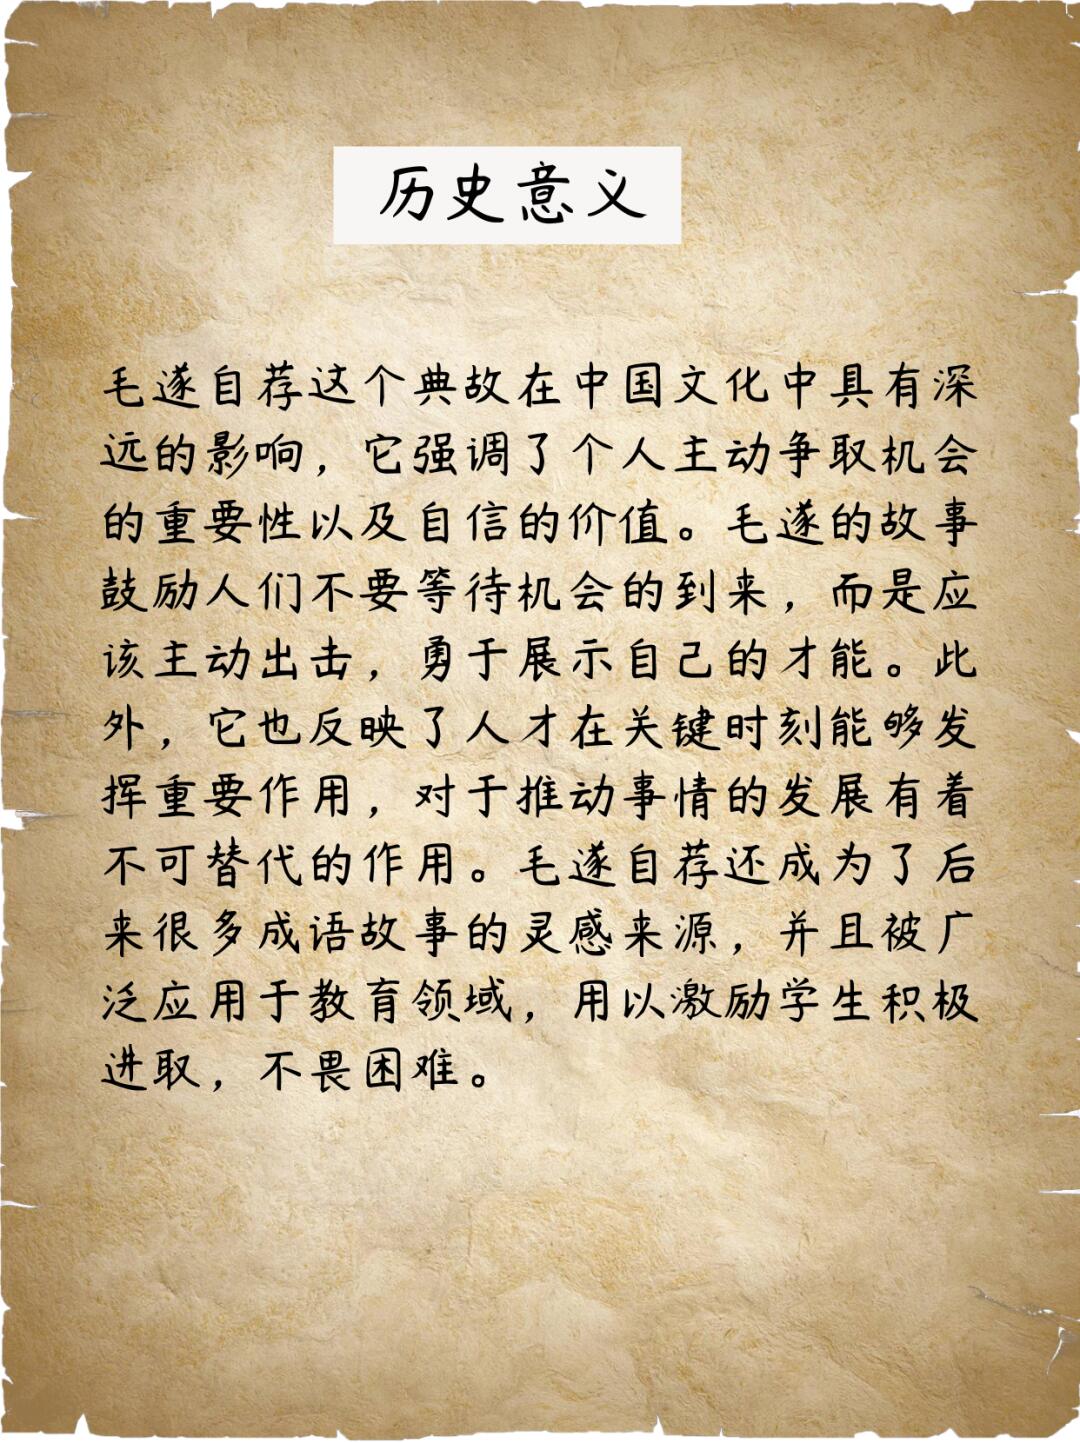 历史意义
毛遂自荐这个典故在中国文化中具有深
远的影响，它强调了个人主动争取机会
的重要性以及自信的价值。毛遂的故事
鼓励人们不要等待机会的到来，而是应
该主动出击，勇于展示自己的才能。此
外，它也反映了人才在关键时刻能够发
挥重要作用，对于推动事情的发展有着
不可替代的作用。毛遂自荐还成为了后
来很多成语故事的灵感来源，并且被广
泛应用于教育领域，用以激励学生积极
进取，不畏困难。